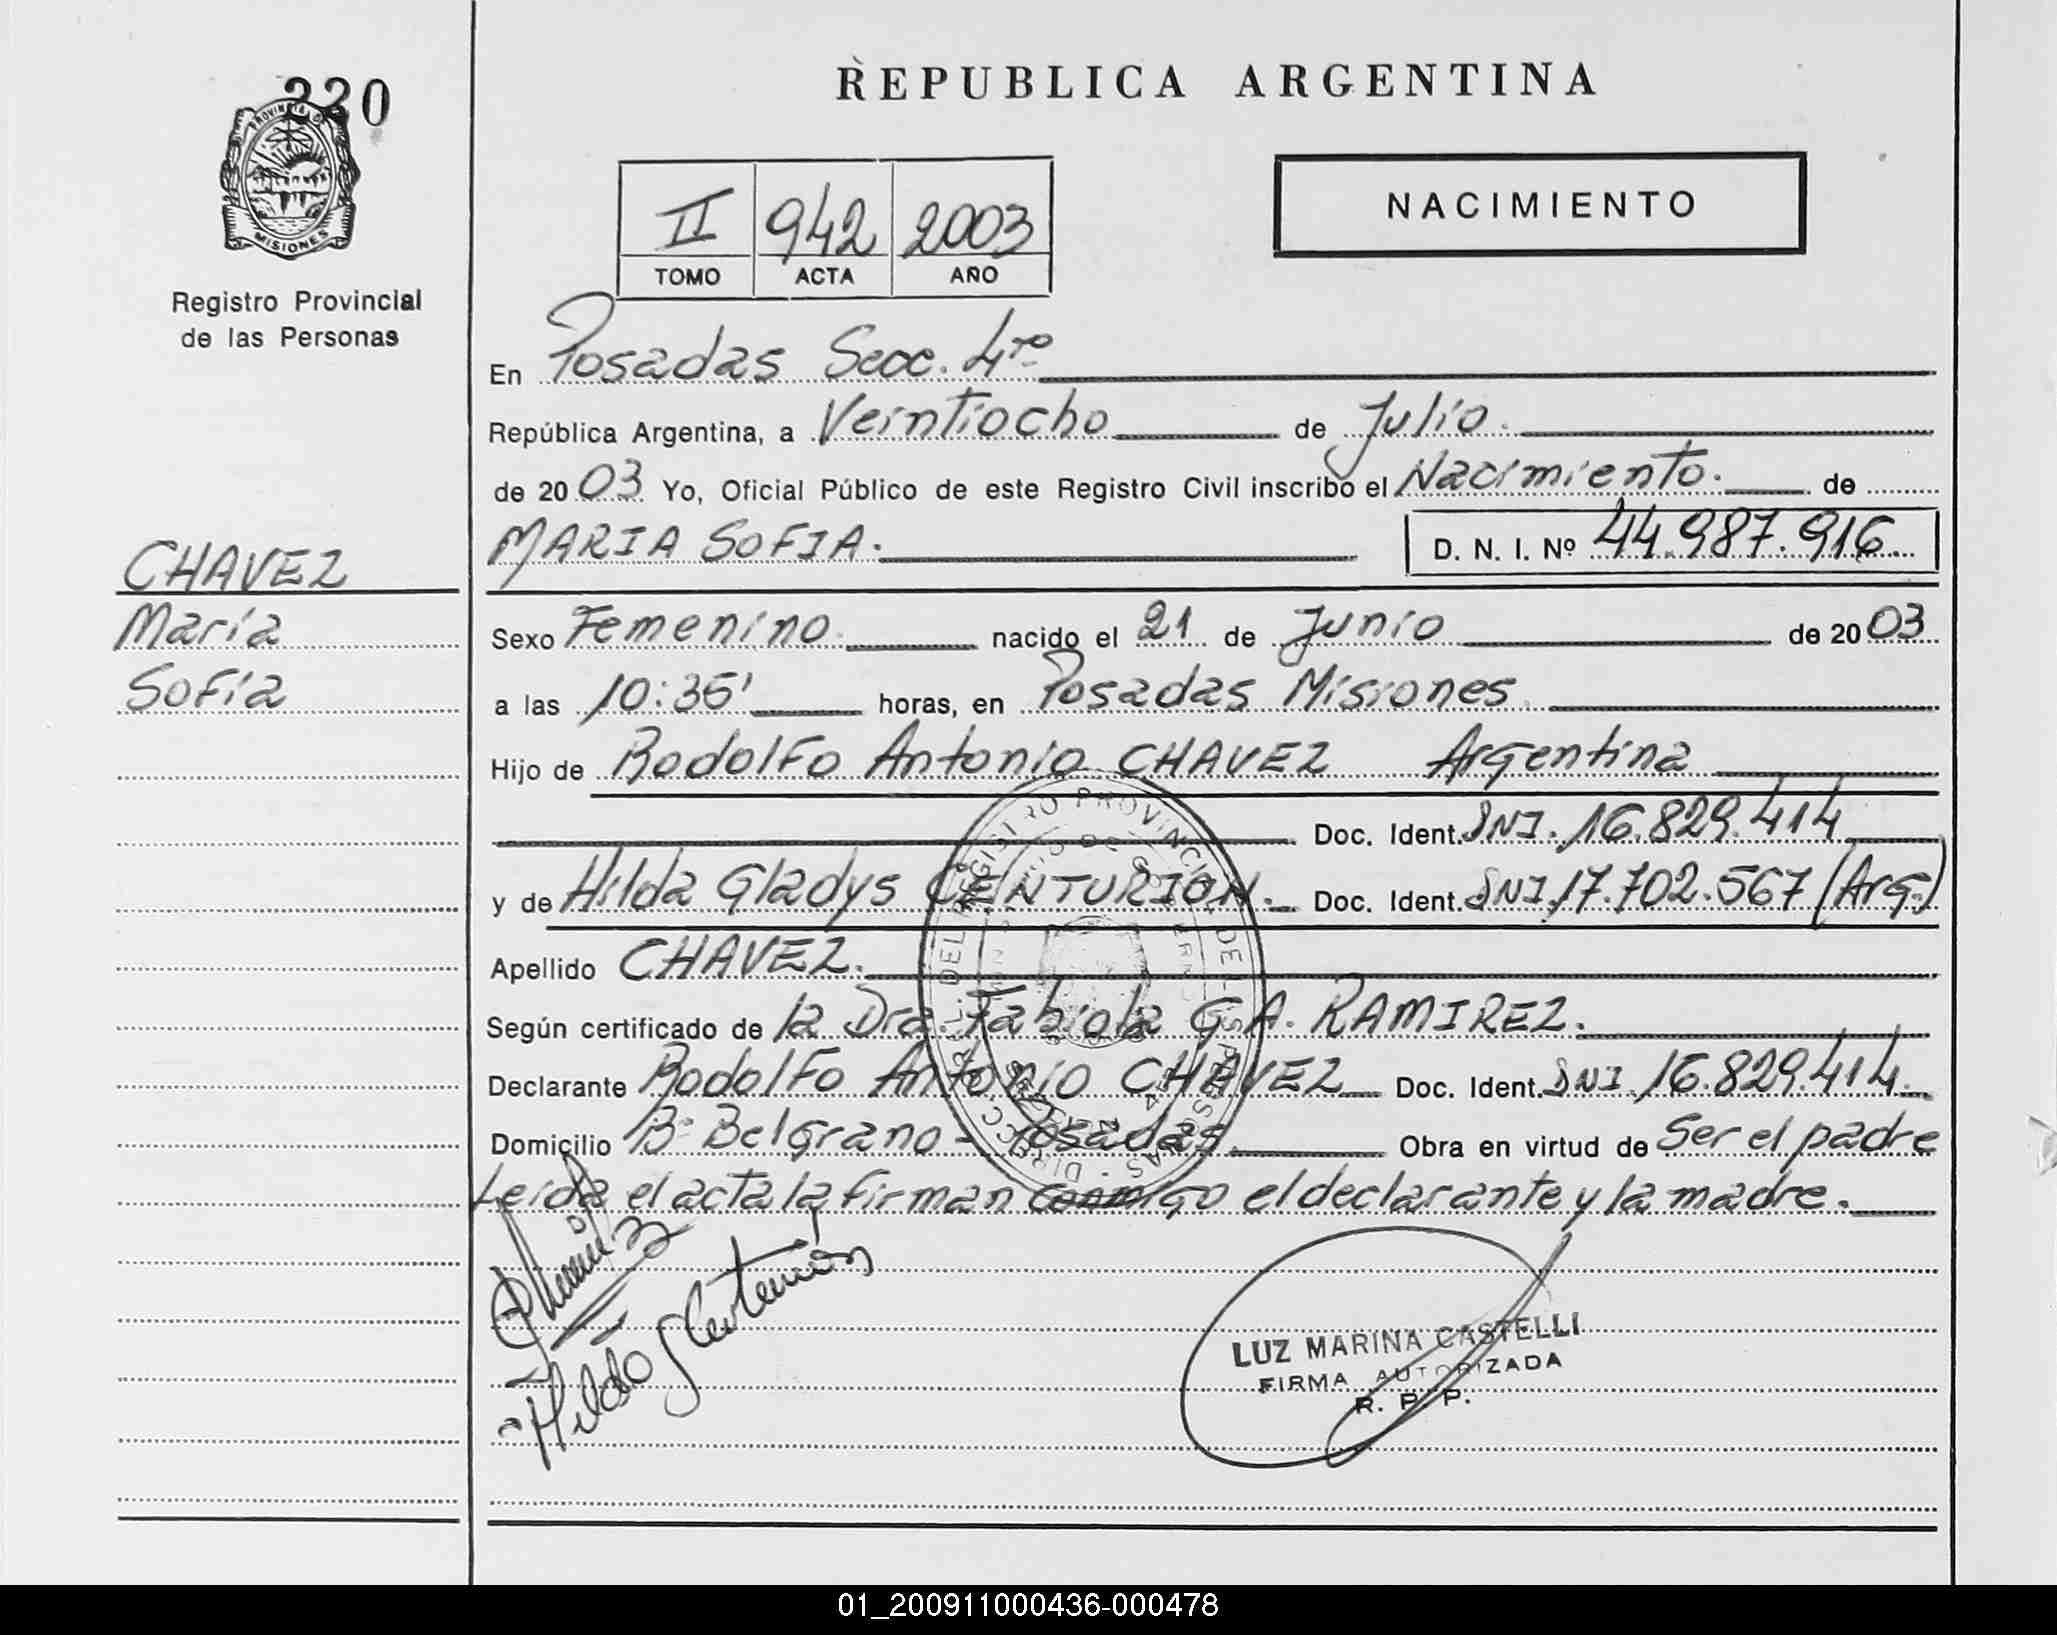 220
PROVINCIA D
MISIONES
Registro Provincial
de las Personas
CHAVEZ
María
Sofía
REPUBLICA ARGENTINA
NACIMIENTO
II 942 2003
TOMO ACTA AÑO
En Posadas Secc. 4ta
República Argentina, a Veintiocho de Julio.
de 2003 Yo, Oficial Público de este Registro Civil inscribo el Nacimiento. de
MARIA SOFIA. D. N. I. Nº 44.987.916.
Sexo Femenino. nacido el 21 de Junio de 2003
a las 10:35' horas, en Posadas Misiones.
Hijo de Rodolfo Antonio CHAVEZ Argentina
Doc. Ident. DNI. 16.829.414
y de Hilda Gladys CENTURION. Doc. Ident. DNI. 17.702.567 (Arg.)
Apellido CHAVEZ.
Según certificado de la Dra. Fabiola G A. RAMIREZ.
Declarante Rodolfo Antonio CHAVEZ Doc. Ident. DNI. 16.829.414.
Domicilio Bº Belgrano - Posadas. Obra en virtud de Ser el padre
Leída el acta la firman conmigo el declarante y la madre.
Hilda G Centurión
LUZ MARINA CASTELLI
FIRMA AUTORIZADA
R. P. P.
01_200911000436-000478